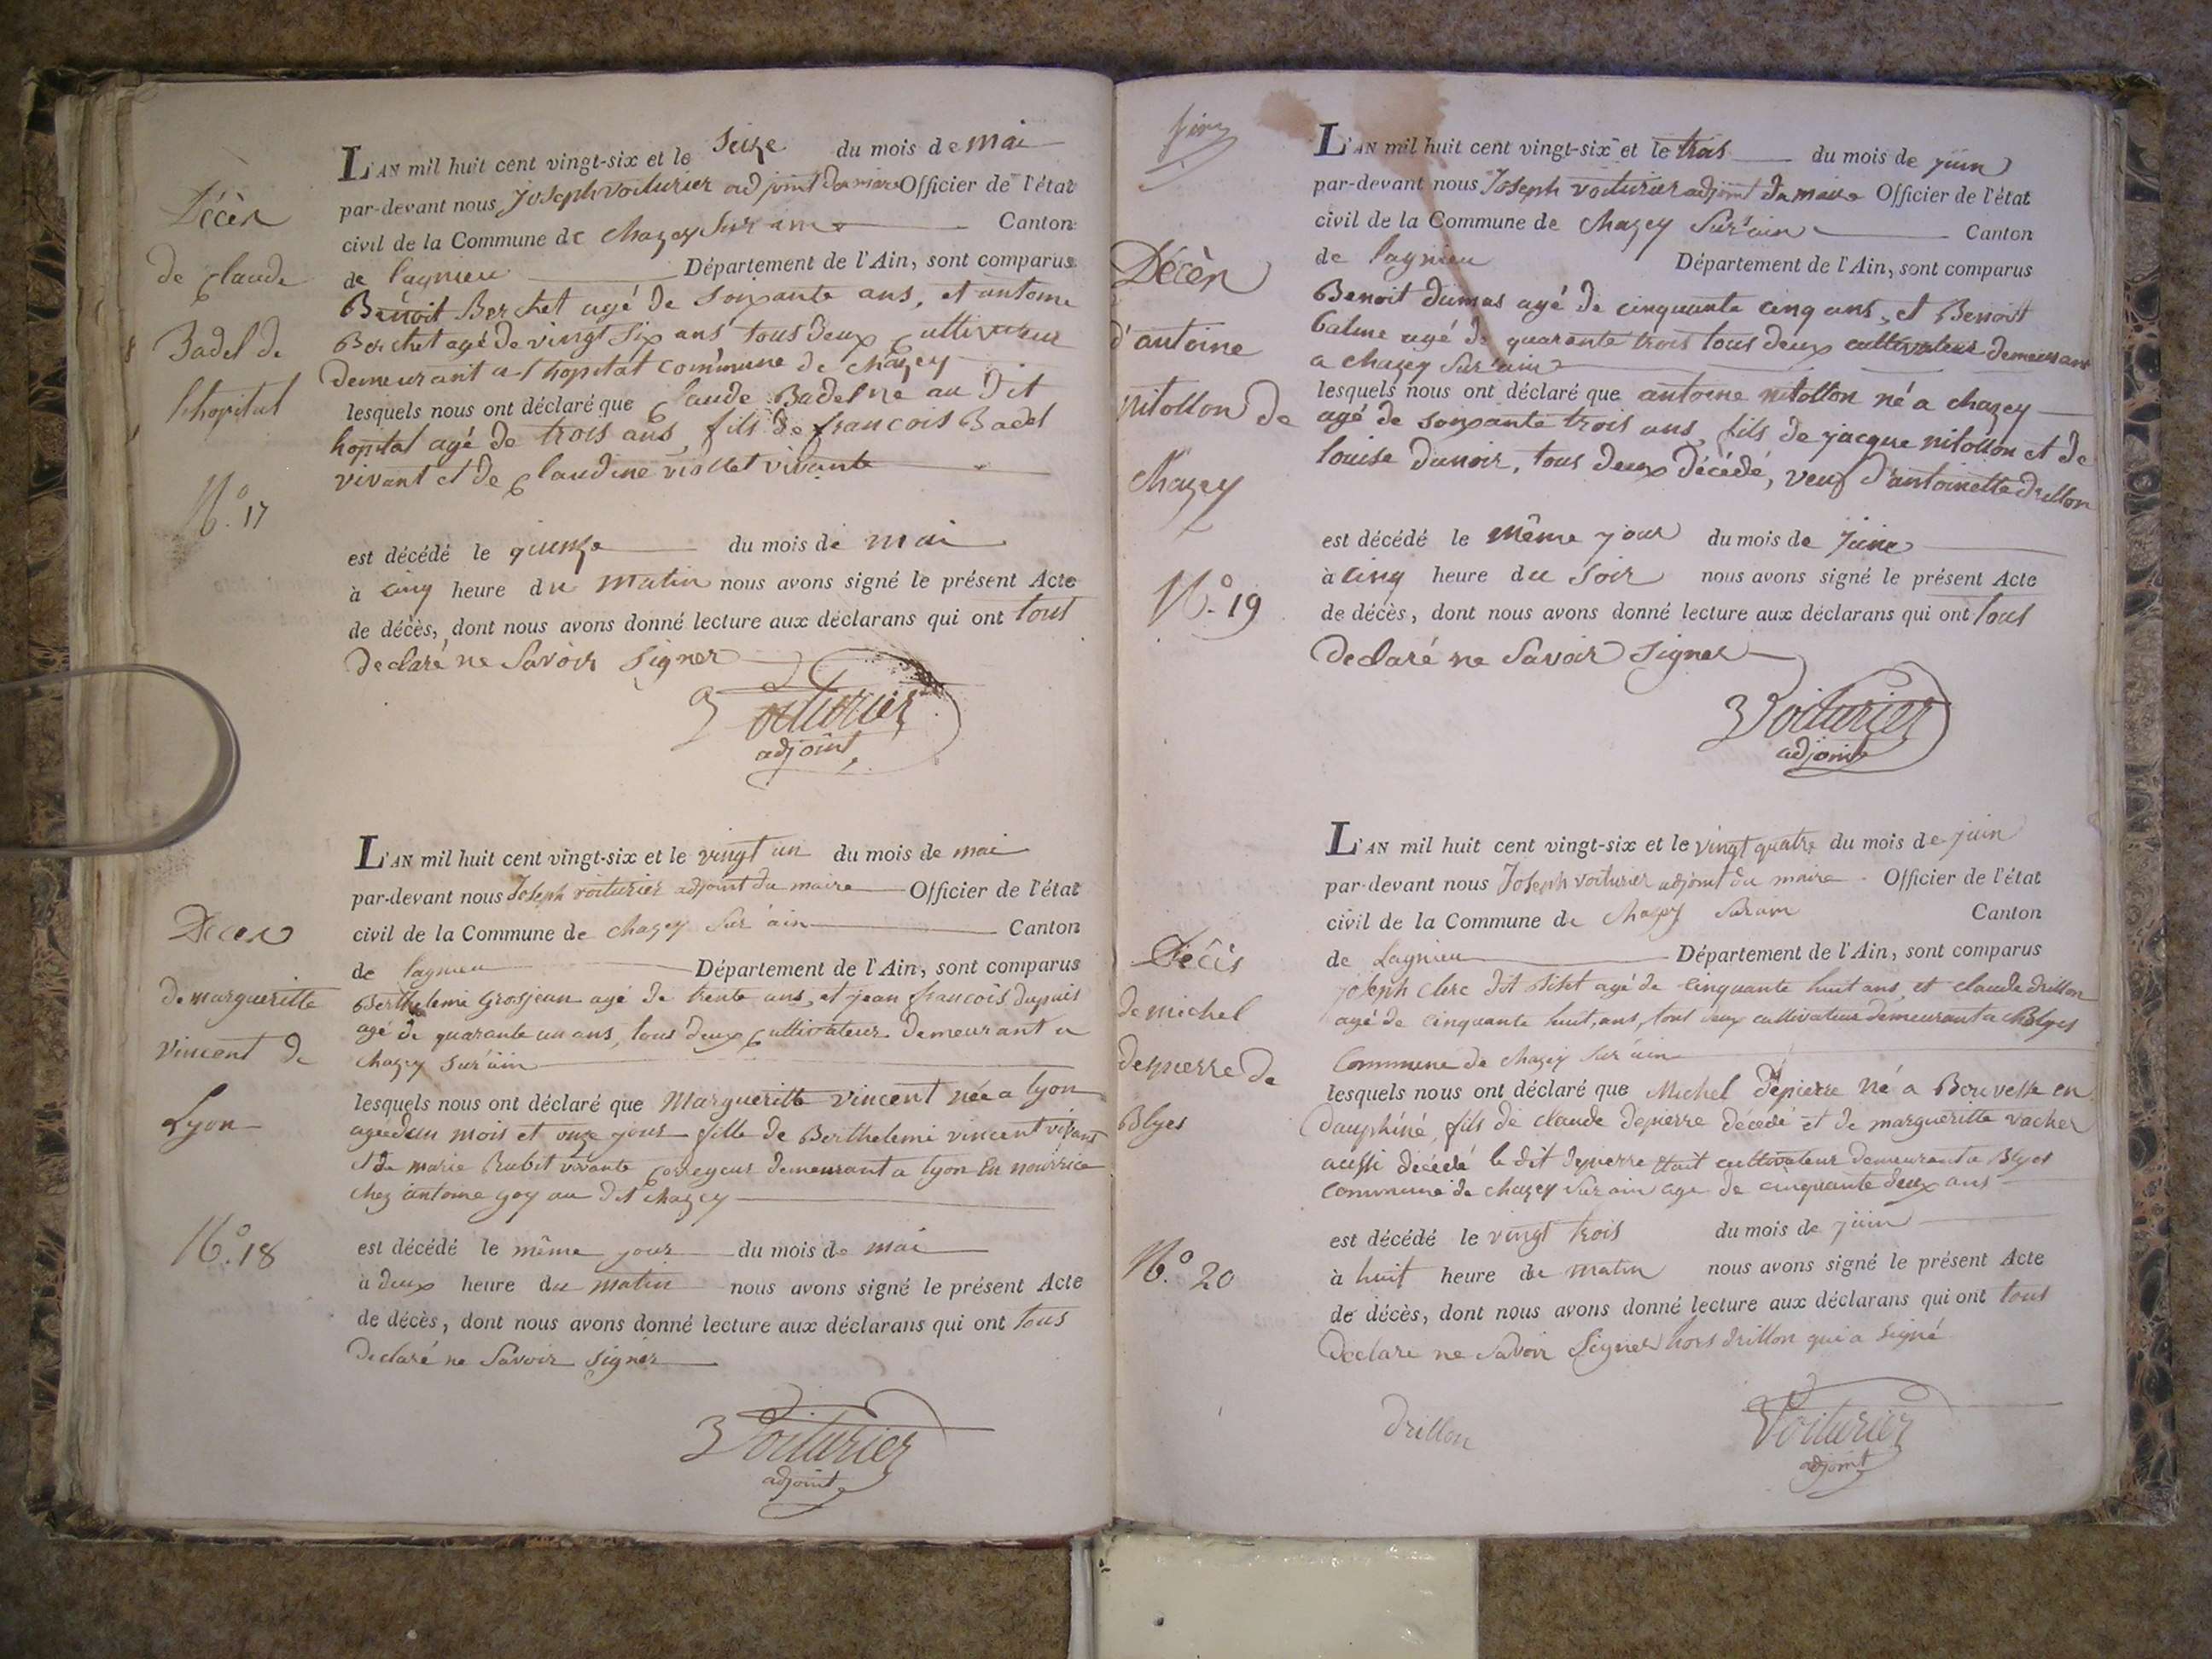 Décès
de Claude
Badel de
lhopital
N.o 17
L'AN mil huit cent vingt-six et le Seize du mois de mai
par-devant nous Joseph voiturier adjoint du maire Officier de l'état
civil de la Commune de chazey Sur ain Canton
de lagnieu Département de l'Ain, sont comparus
Benoit Berchet agé de soixante ans, et antoine
Berchet agé de vingt six ans tous deux Cultivateur
demeurant a lhopital commune de chazey
lesquels nous ont déclaré que Claude Badel né au dit
hopital agé de trois ans, fils de francois Badel
vivant et de Claudine viollet vivante
est décédé le quinze du mois de mai
à cinq heure du matin nous avons signé le présent Acte
de décès, dont nous avons donné lecture aux déclarans qui ont tous
declaré ne Savoir Signer
Voiturier
adjoint
Deces
de margueritte
vincent de
Lyon
N.o 18
L'AN mil huit cent vingt-six et le vingt un du mois de mai
par-devant nous Joseph voiturier adjoint du maire Officier de l'état
civil de la Commune de chazey Sur ain Canton
de lagnieu Département de l'Ain, sont comparus
Berthelemi Grosjean agé de trente ans, et jean francois dupuis
agé de quarante un ans, tous deux Cultivateur demeurant a
chazey Sur ain
lesquels nous ont déclaré que Margueritte vincent née a lyon
agée d'un mois et onze jours fille de Berthelemi vincent vivant
et de marie Rubit vivante demeurant a lyon En nourrice
chez antoine goy au dit chazey
est décédé le même jour du mois de mai
à deux heure du matin nous avons signé le présent Acte
de décès, dont nous avons donné lecture aux déclarans qui ont tous
declaré ne Savoir signer
Voiturier
adjoint
Décès
d'antoine
nitollon de
chazey
N.o 19
L'AN mil huit cent vingt-six et le trois du mois de juin
par-devant nous Joseph voiturier adjoint du maire Officier de l'état
civil de la Commune de chazey Sur ain Canton
de lagnieu Département de l'Ain, sont comparus
Benoit dumas agé de cinquante cinq ans, et Benoit
balme agé de quarante trois tous deux cultivateur demeurant
a chazey Sur ain
lesquels nous ont déclaré que antoine nitollon né a chazey
agé de soixante trois ans, fils de jacque nitollon et de
louise dunoir, tous deux décédé, veuf d'antoinette drillon
est décédé le même jour du mois de juin
à cinq heure du soir nous avons signé le présent Acte
de décès, dont nous avons donné lecture aux déclarans qui ont tous
declaré ne Savoir signer
Voiturier
adjoint
Décès
de michel
depierre de
Blyes
N.o 20
L'AN mil huit cent vingt-six et le vingt quatre du mois de juin
par-devant nous Joseph voiturier adjoint du maire Officier de l'état
civil de la Commune de chazey Sur ain Canton
de Lagnieu Département de l'Ain, sont comparus
joseph clerc dit agé de cinquante huit ans et claude drillon
agé de cinquante huit, ans, tout deux cultivateur demeurant a Blyes
Commune de chazey Sur ain
lesquels nous ont déclaré que Michel depierre né a Bouvesse en
dauphiné, fils de claude depierre décédé et de margueritte vacher
aussi décédé le dit depierre était cultivateur demeurant a Blyes
commune de chazey Sur ain agé de cinquante deux ans
est décédé le vingt trois du mois de juin
à huit heure du matin nous avons signé le présent Acte
de décès, dont nous avons donné lecture aux déclarans qui ont tous
Declare ne Savoir Signer hors drillon qui a signé
drillon
Voiturier
adjoint